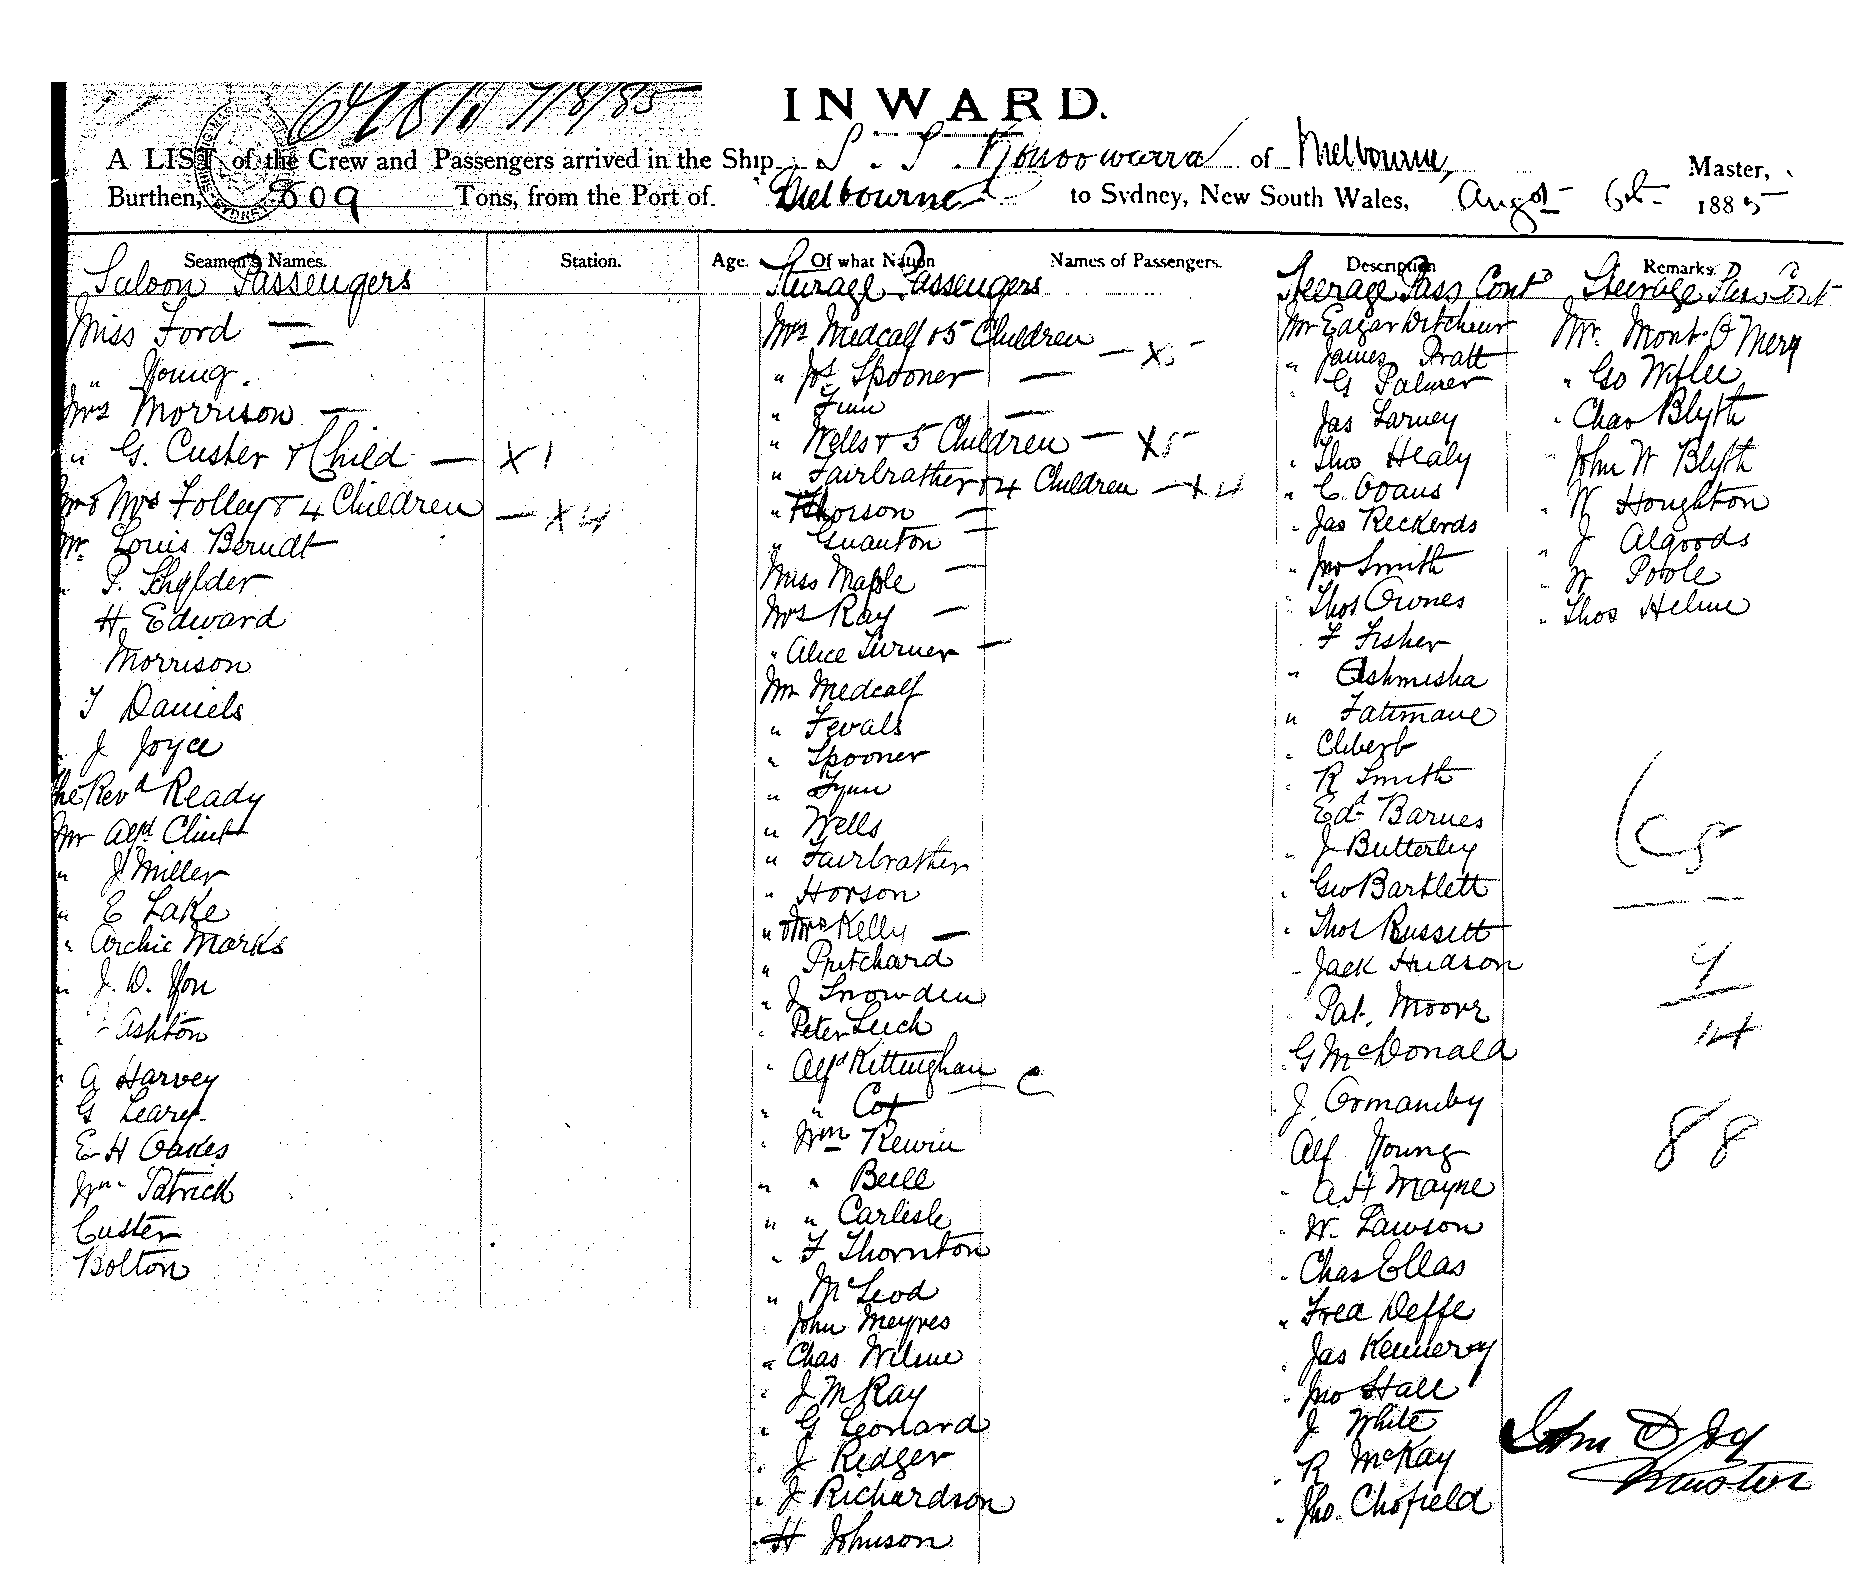 7/8/85
INWARD.
A LIST of the Crew and Passengers arrived in the Ship S. S. Konoowarra of Melbourne, Master,
Burthen, 809 Tons, from the Port of Melbourne to Sydney, New South Wales, Augst 6th 1885
Seamen's Names. Station. Age. Of what Nation Names of Passengers. Description Remarks.
Saloon Passengers
Miss Ford —
" Young.
Mrs Morrison —
" G. Custer & Child — X 1
Mr & Mrs Folley & 4 Children — X 4
Mr. Louis Berndt
" P. Schylder
H. Edward
Morrison
T Daniels
J Joyce
The Revd Ready
Mr Alfd Clint
" J Miller
" E Lake
" Archie Marks
" J. D. Yon
" Ashton
" A Harvey
G Leary.
E H Oakes
Wm Patrick
Custer
Bolton
Steerage Passengers
Mrs Medcalf & 5 Children — X 5
" Jos Spooner —
" Finn —
" Wells & 5 Children — X 5
" Fairbrather & 4 Children — X 4
" Horson —
" Guanton —
Miss Maple —
Mrs Ray —
" Alice Turner —
Mr Medcalf
" Fevals
" Spooner
" Fynn
" Wells
" Fairbrather
" Horson
" & Mrs Kelly —
" Pritchard
" J Snowden
" Peter Leech
" Alfd Kettingham C
" " Cox
" Wm Rewin
" " Bell
" " Carlisle
" F Thornton
" McLeod
John Meyres
" Chas Wilme
" J McKay
" G Leonard
" J Redger
" J Richardson
" H Johnson
Steerage Pass Contd
Mr Edgar
" James Pratt
" G Palmer
Jas Larney
" Thos Healy
" C. Evans
" Jas Reckerds
" Jno Smith
" Thos Ownes
F Fisher
" Ashmisha
" Fatimane
"
" R Smith
Edd Barnes
" J Butterley
" Geo Bartlett
" Thos Russett
" Jack Hudson
Pat. Moore
" G McDonald
J. Ormandy
Alf Young
" A. H Mayne
" W. Lawson
" Chas Ellas
" Fred Deffe
" Jas Kennervy
" Jno Hall
J White
" R McKay
" Jho. Chofield
Steerage Pass Cont
Mr. Mont. O Mery
" Geo
" Chas Blyth
John W Blyth
" W Houghton
" J Algoods
" W Poole
" Thos Helme
88
John D Joy
Master